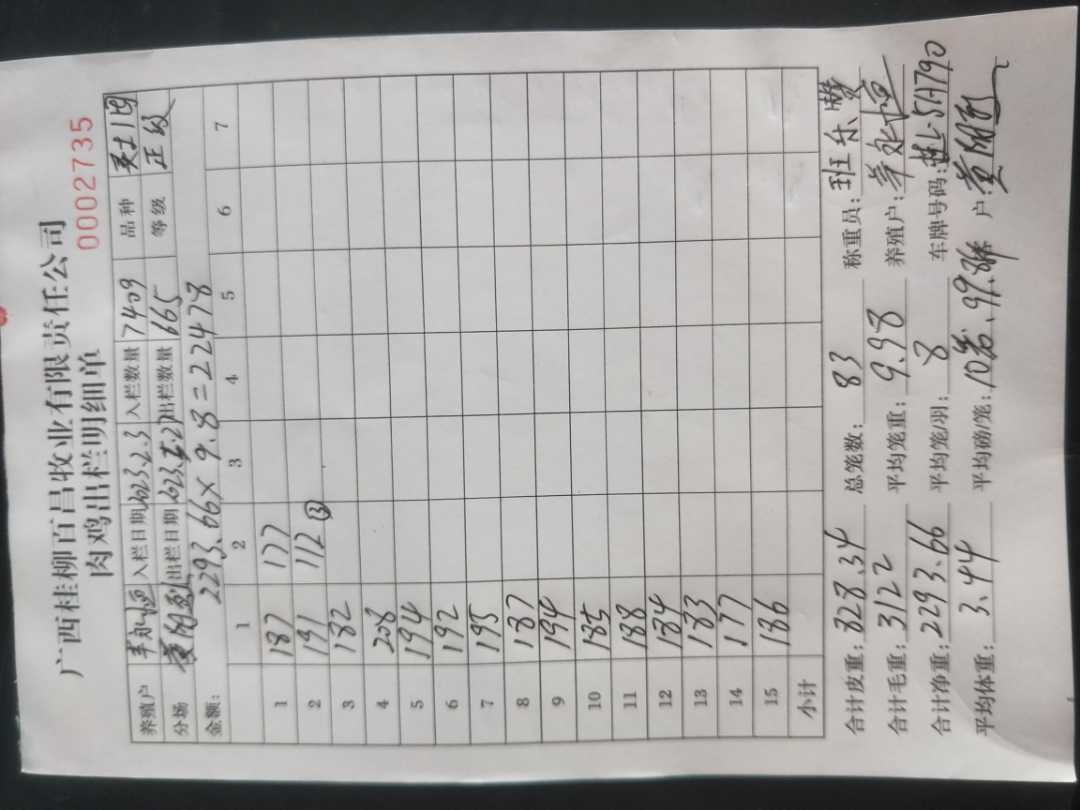 广西桂柳百昌牧业有限责任公司
肉鸡出栏明细单 0002735
养殖户 羊永恒 入栏日期 2023.2.3 入栏数量 7409 品种
分场 出栏日期 出栏数量 665 等级 正级
金额: 2293.66×9.8=22478
1 2 3 4 5 6 7
1 187 177
2 191 112③
3 182
4 208
5 194
6 192
7 195
8 187
9 194
10 185
11 188
12 184
13 183
14 177
15 186
小计
合计皮重: 828.34 总笼数: 83 称重员: 班乐赞
合计毛重: 3122 平均笼重: 9.98 养殖户: 羊永恒
合计净重: 2293.66 平均笼/羽: 8 车牌号码: 桂L·5A790
平均体重: 3.44 平均磅/笼: 户: